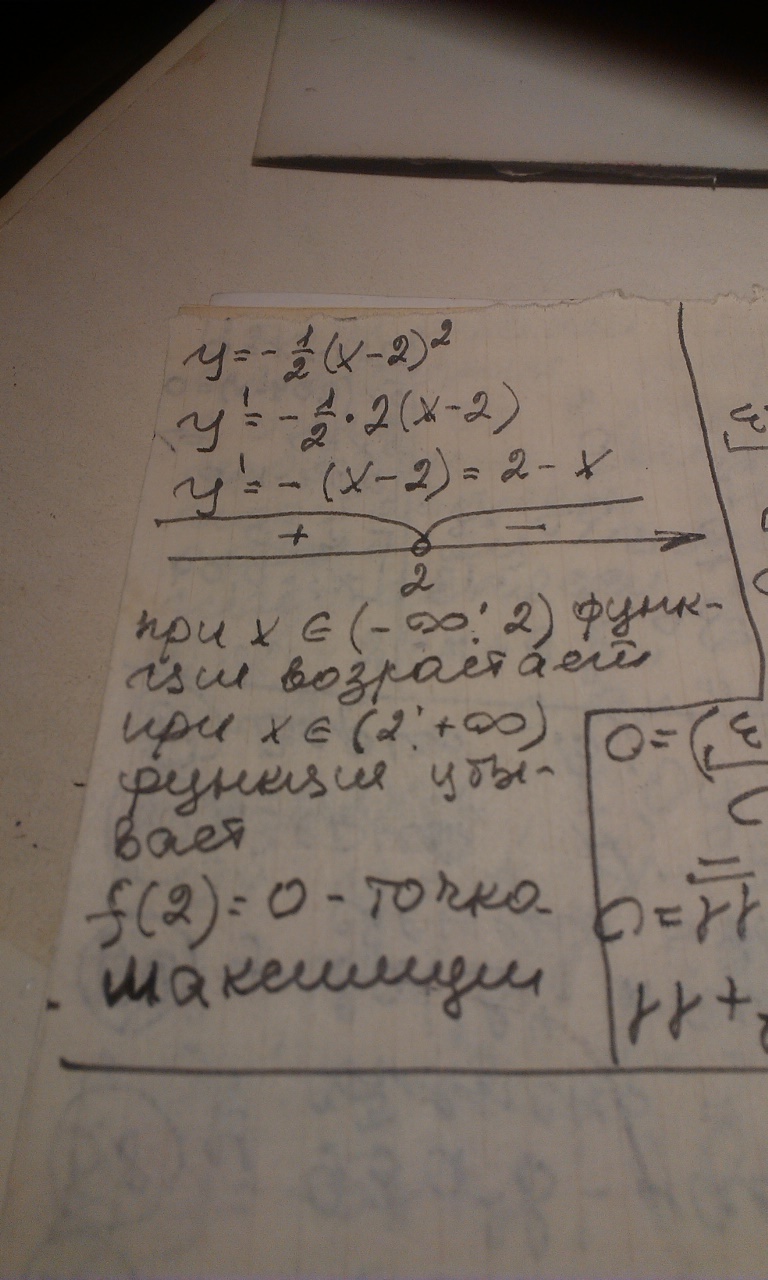 y=-1/2(x-2)²
y'=-1/2·2(x-2)
y'=-(x-2)=2-x
+ -
2
при x∈(-∞; 2) функ-
ция возрастает
при x∈(2; +∞)
функция убы-
вает
f(2)=0 - точка
максимума